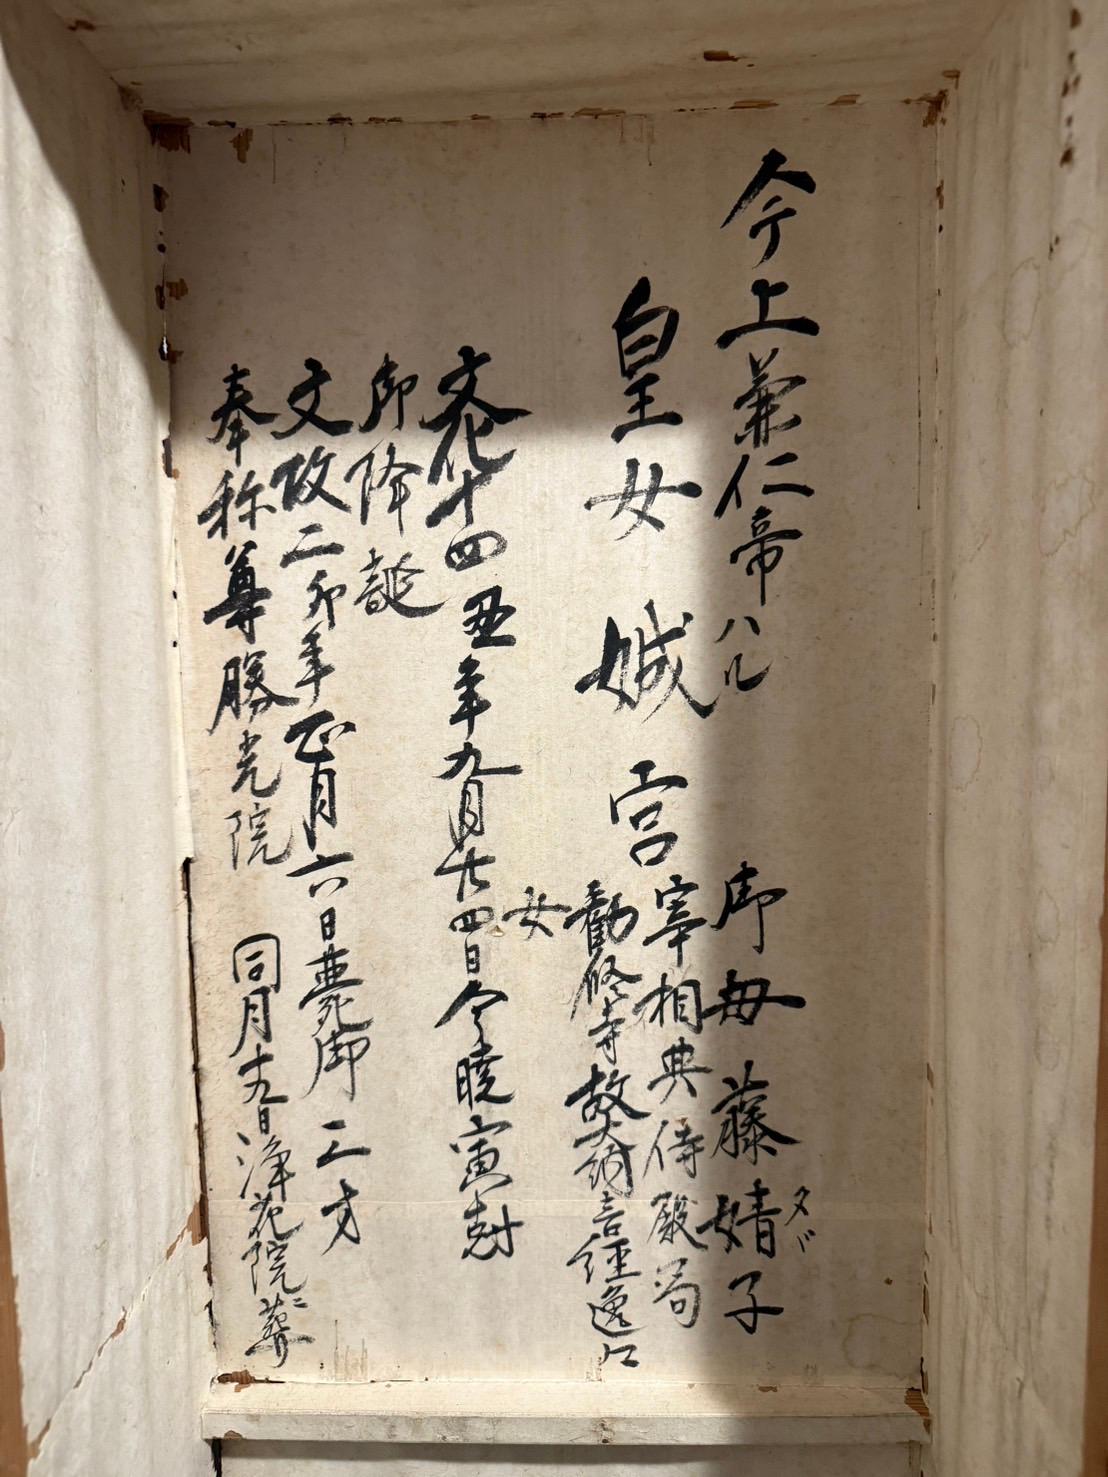 今上兼仁帝ハル
皇女 娍宮
御母藤婧子
タヾ
宰相典侍殿局
勸修寺故大納言経逸に
女
文化十四丑年九月廿四日今暁寅尅
御降誕
文政二卯年正月六日薨御三才
奉称尊勝光院 同月十九日浄花院ニ葬